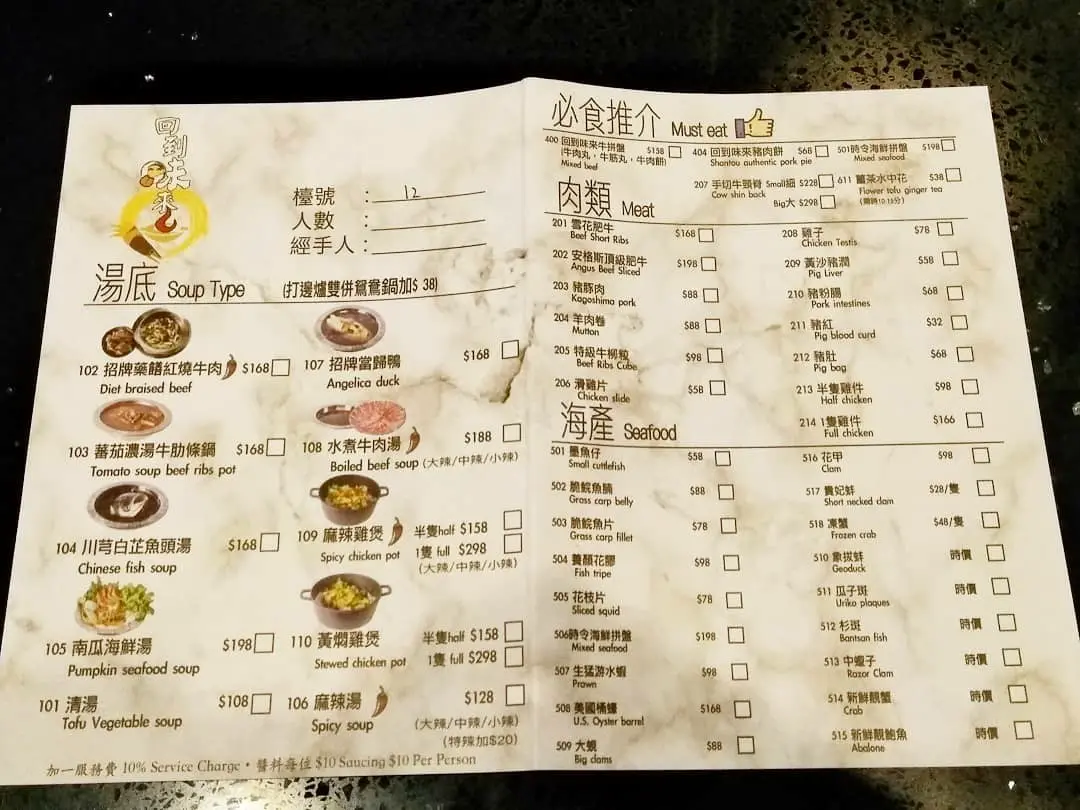 回到味來
檯號 : 12
人數 :
經手人 :
湯底 Soup Type (打邊爐雙併鴛鴦鍋加$ 38)
102 招牌藥膳紅燒牛肉 $168
Diet braised beef
107 招牌當歸鴨 $168
Angelica duck
103 蕃茄濃湯牛肋條鍋 $168
Tomato soup beef ribs pot
108 水煮牛肉湯 $188
Boiled beef soup (大辣/中辣/小辣)
104 川芎白芷魚頭湯 $168
Chinese fish soup
109 麻辣雞煲 半隻half $158
Spicy chicken pot 1隻 full $298
(大辣/中辣/小辣)
105 南瓜海鮮湯 $198
Pumpkin seafood soup
110 黃燜雞煲 半隻half $158
Stewed chicken pot 1隻 full $298
101 清湯 $108
Tofu Vegetable soup
106 麻辣湯 $128
Spicy soup (大辣/中辣/小辣)
(特辣加$20)
加一服務費 10% Service Charge • 醬料每位 $10 Saucing $10 Per Person
必食推介 Must eat
400 回到味來牛拼盤 $158
(牛肉丸,牛筋丸,牛肉餅)
Mixed beef
404 回到味來豬肉餅 $68
Shantou authentic pork pie
501時令海鮮拼盤 $198
Mixed seafood
207 手切牛頸脊 Small細 $228
Cow shin back
Big大 $298
611 薑茶水中花 $38
Flower tofu ginger tea
(需時10-15分)
肉類 Meat
201 雪花肥牛 $168
Beef Short Ribs
202 安格斯頂級肥牛 $198
Angus Beef Sliced
203 豬豚肉 $88
Kagoshima pork
204 羊肉卷 $88
Mutton
205 特級牛柳粒 $98
Beef Ribs Cube
206 滑雞片 $58
Chicken slide
208 雞子 $78
Chicken Testis
209 黃沙豬潤 $58
Pig Liver
210 豬粉腸 $68
Pork intestines
211 豬紅 $32
Pig blood curd
212 豬肚 $68
Pig bag
213 半隻雞件 $98
Half chicken
214 1隻雞件 $166
Full chicken
海產 Seafood
501 墨魚仔 $58
Small cuttlefish
502 脆鯇魚腩 $88
Grass carp belly
503 脆鯇魚片 $78
Grass carp fillet
504 養顏花膠 $98
Fish tripe
505 花枝片 $78
Sliced squid
506時令海鮮拼盤 $198
Mixed seafood
507 生猛游水蝦 $98
Prawn
508 美國桶蠔 $168
U.S. Oyster barrel
509 大蜆 $88
Big clams
516 花甲 $98
Clam
517 貴妃蚌 $28/隻
Short necked clam
518 凍蟹 $48/隻
Frozen crab
510 象拔蚌 時價
Geoduck
511 瓜子斑 時價
Uriko plaques
512 杉斑 時價
Bantsan fish
513 中蟶子 時價
Razor Clam
514 新鮮靚蟹 時價
Crab
515 新鮮靚鮑魚 時價
Abalone